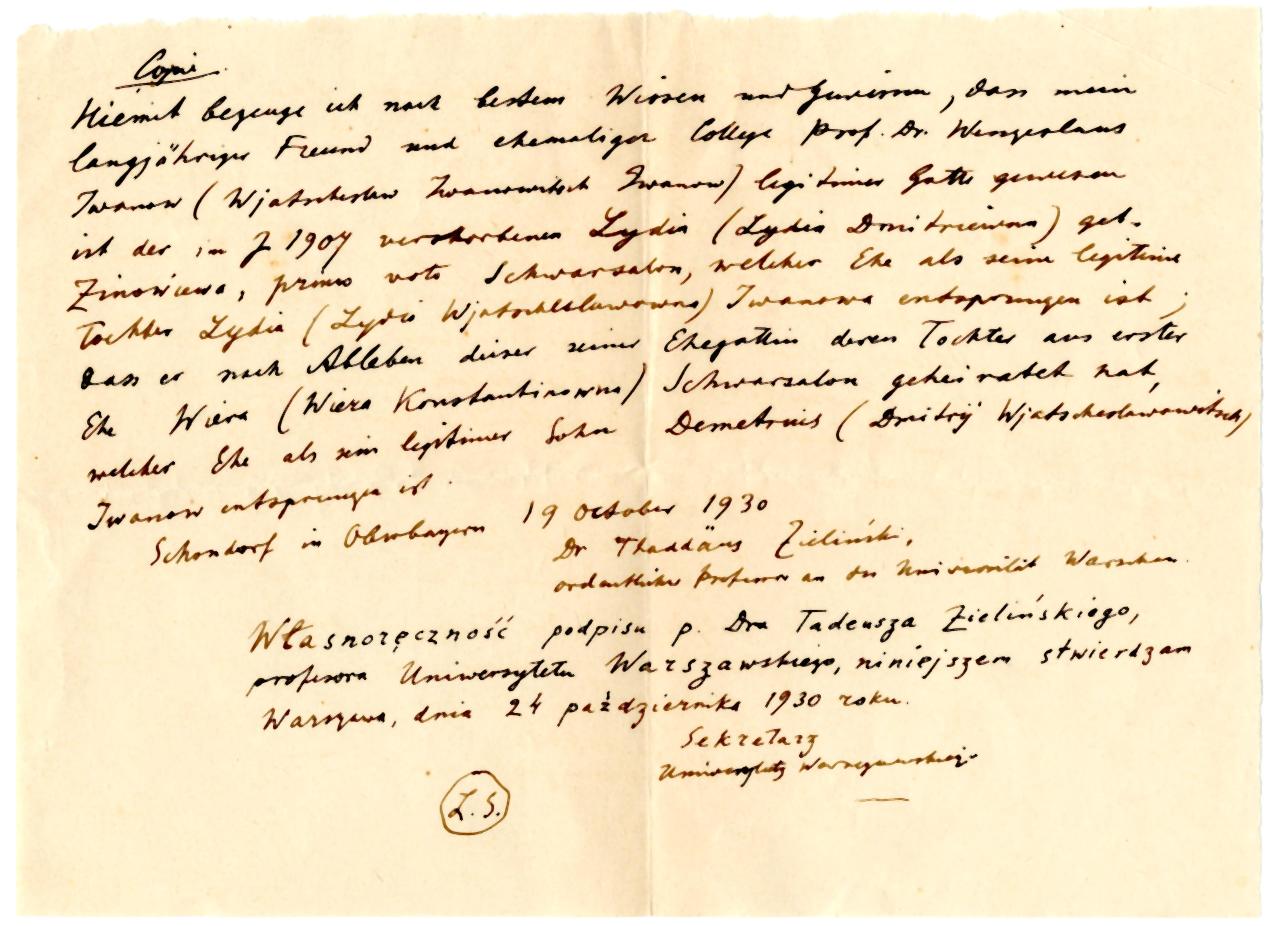 Copie
Hiemit bezeuge ich nach bestem Wissen und Gewissen, dass mein
langjähriger Freund und ehemaliger College Prof. Dr. Wenzeslaus
Iwanow (Wjatscheslaw Iwanowitsch Iwanow) legitimer Gatte gewesen
ist der im J 1907 verstorbenen Lydia (Lydia Dmitriewna) geb.
Zinowiewa, primo voto Schwarsalon, welcher Ehe als seine legitime
Tochter Lydia (Lydia Wjatscheslawowna) Iwanowa entsprungen ist;
dass er nach Ableben dieser seiner Ehegattin deren Tochter aus erster
Ehe Wiera (Wiera Konstantinowna) Schwarsalon geheiratet hat,
welcher Ehe als sein legitimer Sohn Demetrius (Dmitrij Wjatscheslawowitsch)
Iwanow entsprungen ist.
Schondorf in Oberbayern 19 October 1930
Dr Thaddäus Zieliński,
ordentlicher Professor an der Universität Warschau.
Własnoręczność podpisu p. Dra Tadeusza Zielińskiego,
profesora Uniwersytetu Warszawskiego, niniejszem stwierdzam
Warszawa, dnia 24 października 1930 roku.
Sekretarz
Uniwersytetu Warszawskiego
L. S.